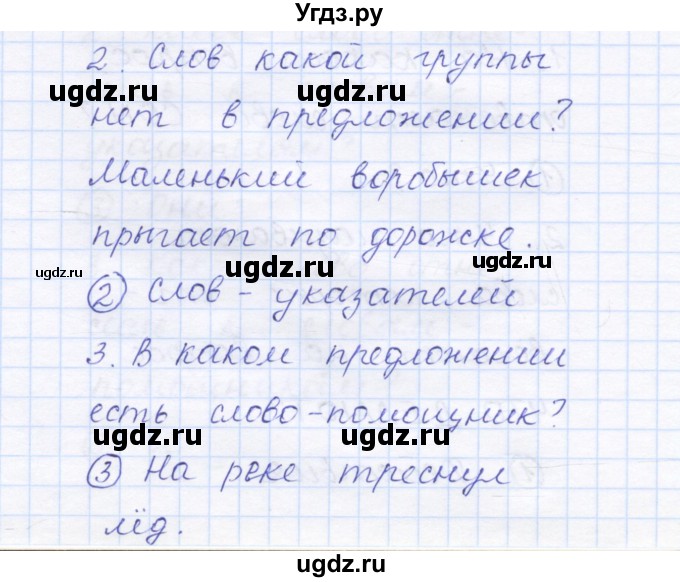 Угдз.ру
2. Слов какой группы
ugdz.ru ugdz.ru
нет в предложении?
Маленький воробышек
прыгает по дорожке.
ugdz.ru ugdz.ru ugdz.ru
② слов - указателей
3. В каком предложении
есть слово-помощник?
ugdz.ru ugdz.ru
③ На реке треснул
лёд.
ugdz.ru